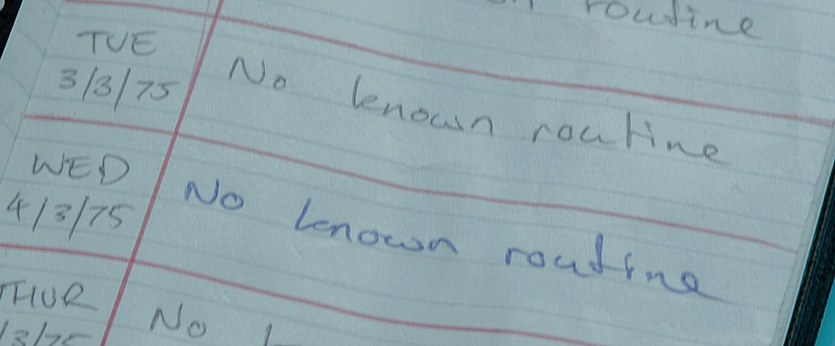 routine
TUE
3/3/75
No known routine
WED
4/3/75
No known routine
THUR
/3/75
No